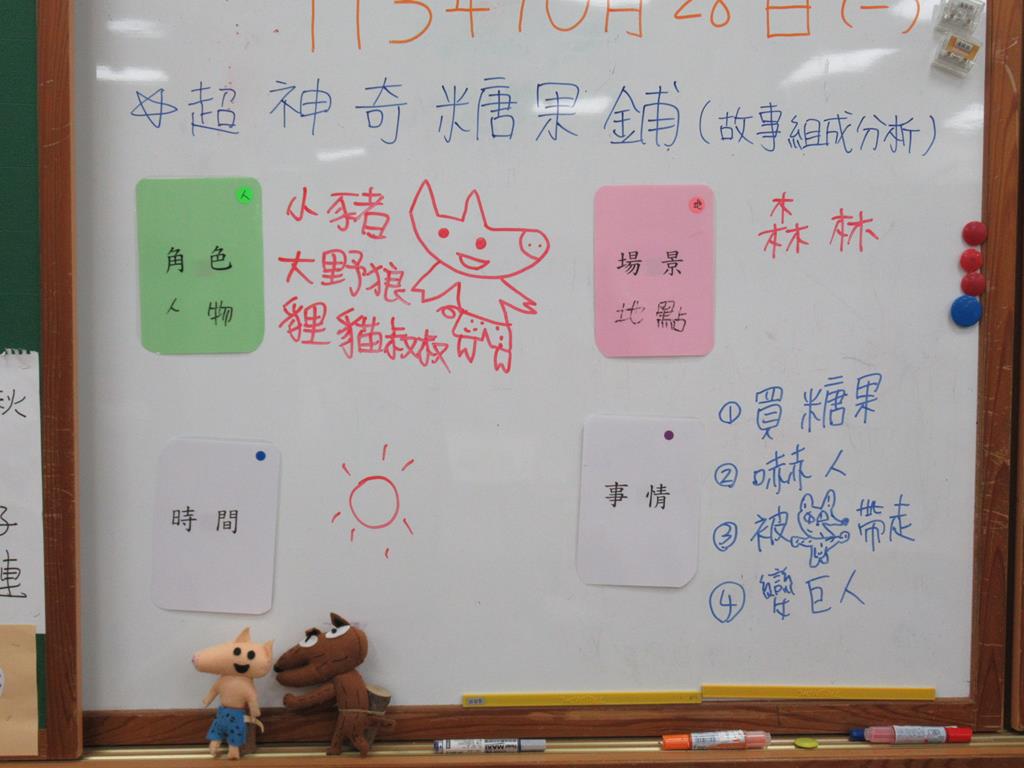 113年10月28日(一)
超神奇糖果鋪(故事組成分析)
人
角色
人物
小豬
大野狼
貍貓叔叔
地
場景
地點
森林
時間
事情
①買糖果
②嚇人
③被 帶走
④變巨人
秋
子
連
MAXI